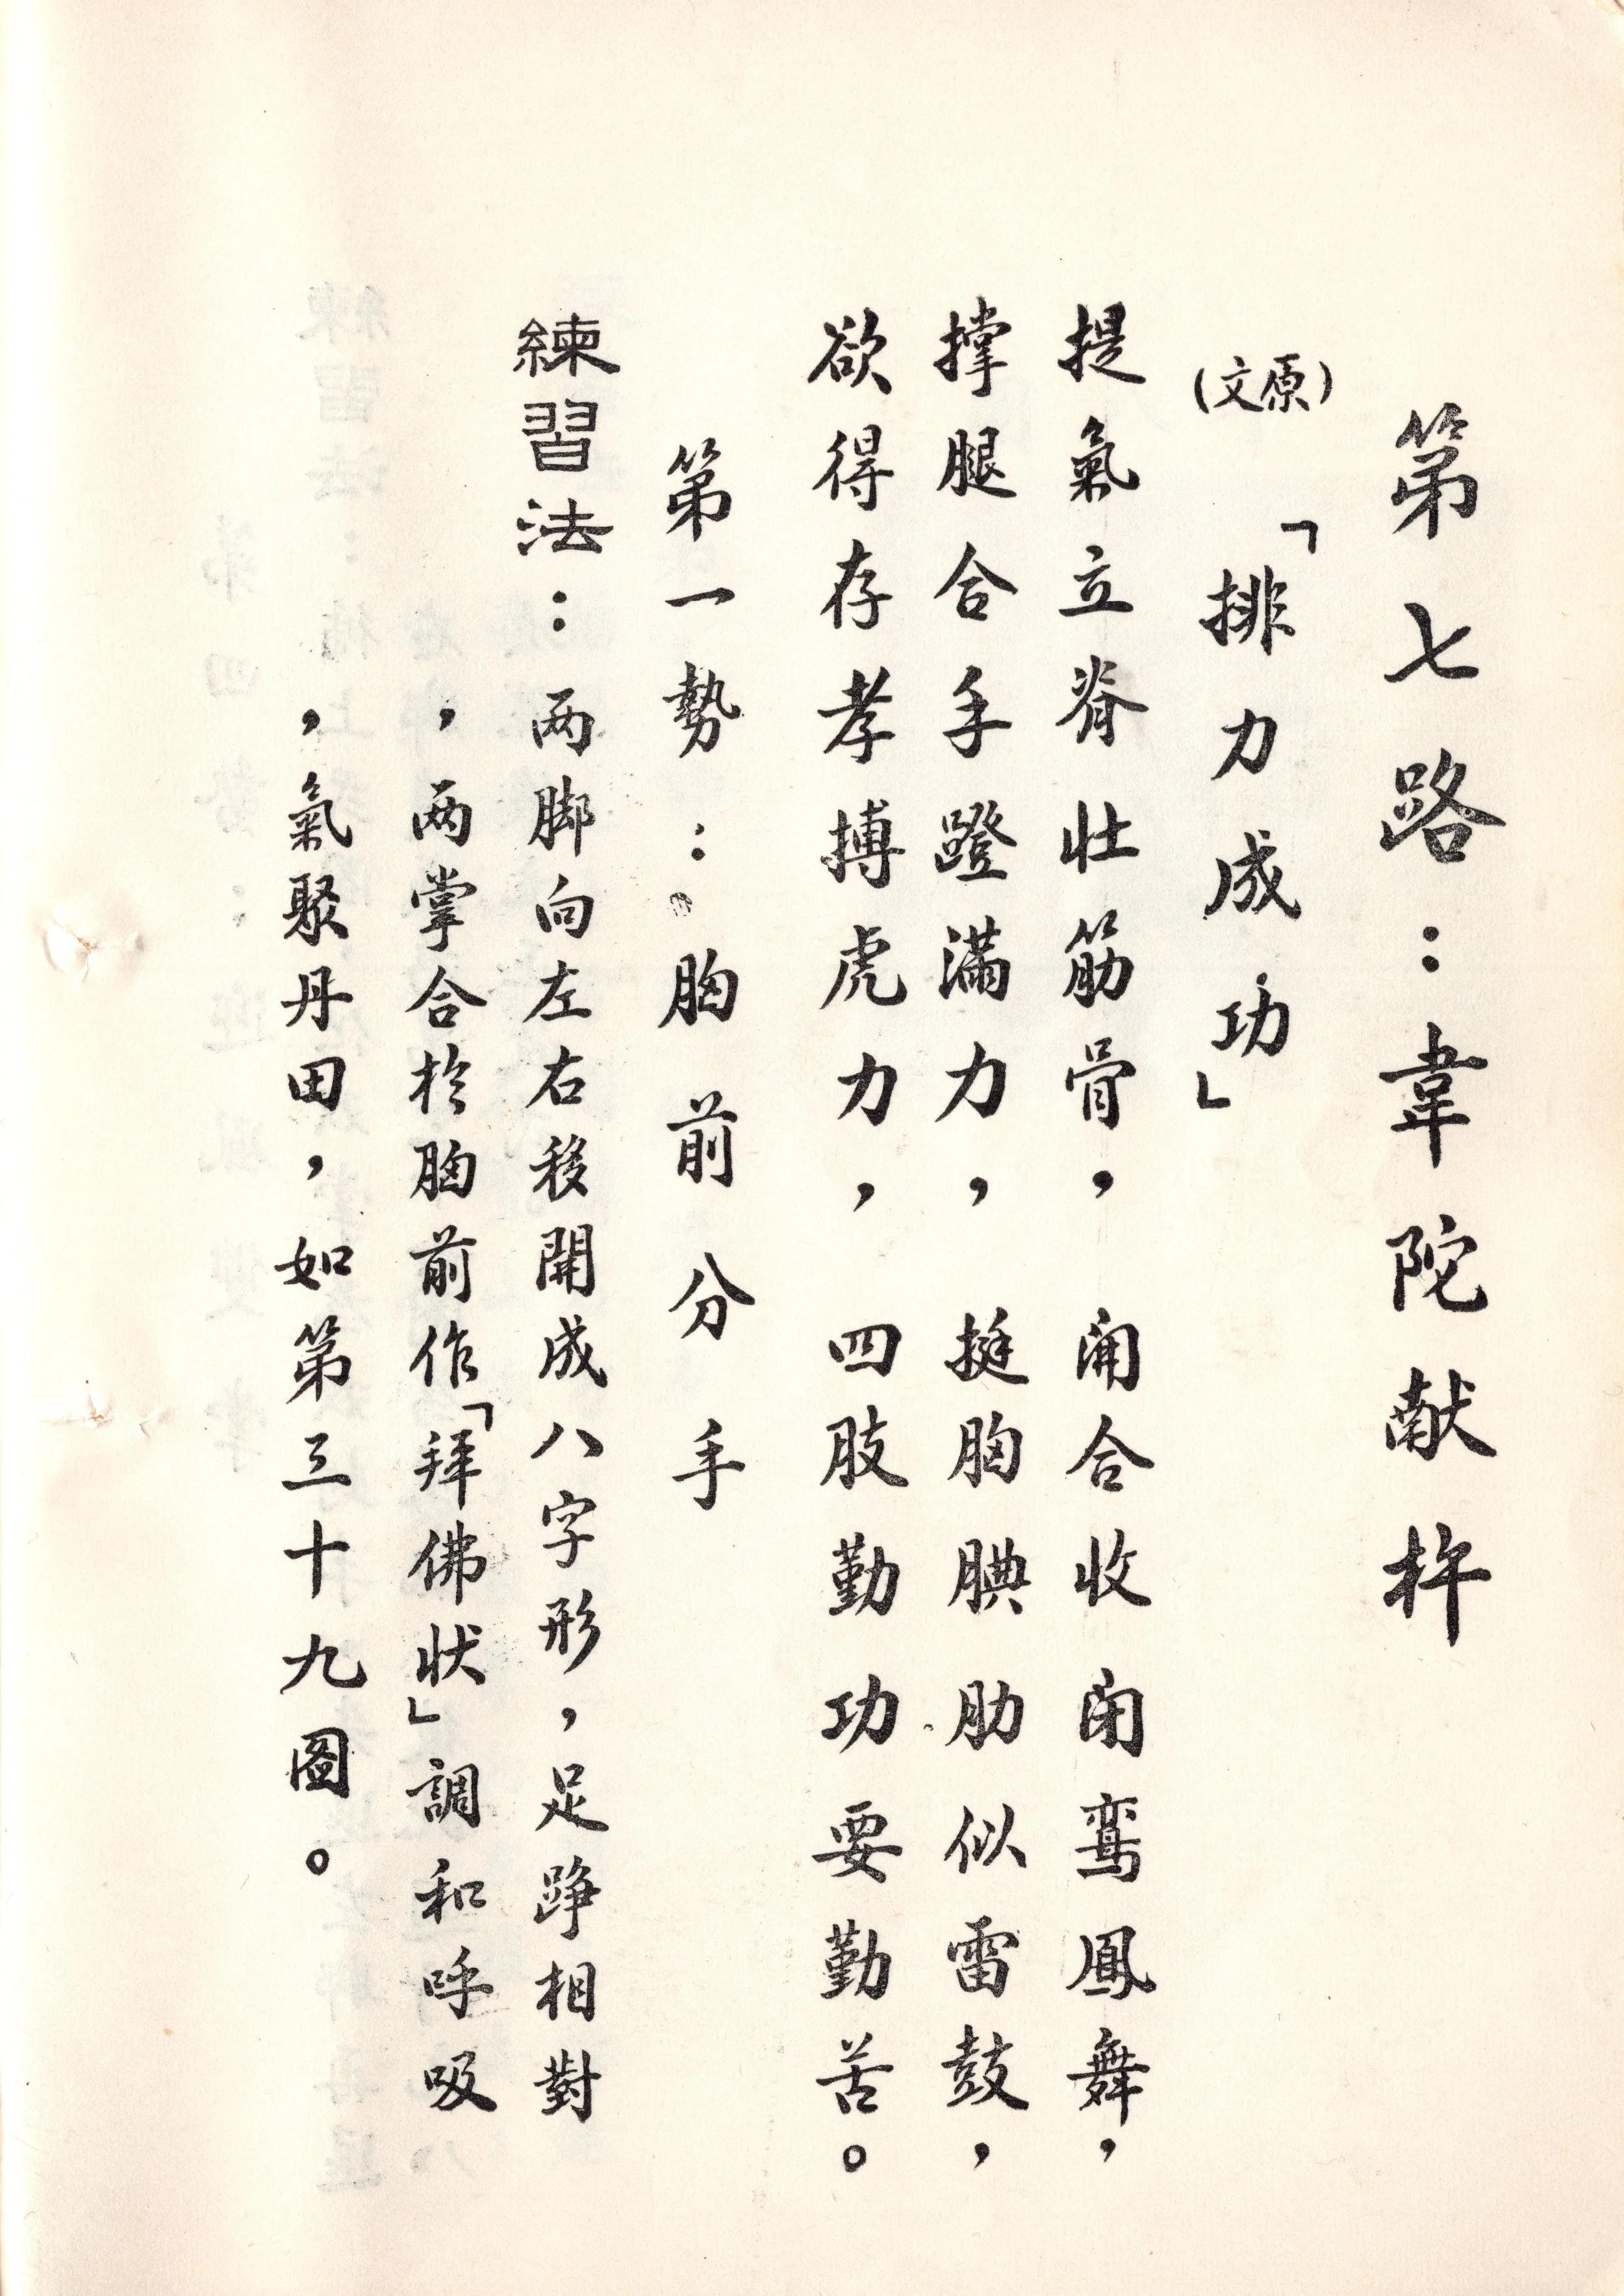 第七路：韋陀献杵
(原文)
「排力成功」
提氣立脊壯筋骨，開合收闭鸾鳳舞，
撑腿合手蹬滿力，挺胸腆肋似雷鼓，
欲得存孝搏虎力，四肢勤功要勤苦。
第一勢：胸前分手
練習法：两脚向左右移開成八字形，足踭相對
，两掌合於胸前作「拜佛状」調和呼吸
，氣聚丹田，如第三十九圖。